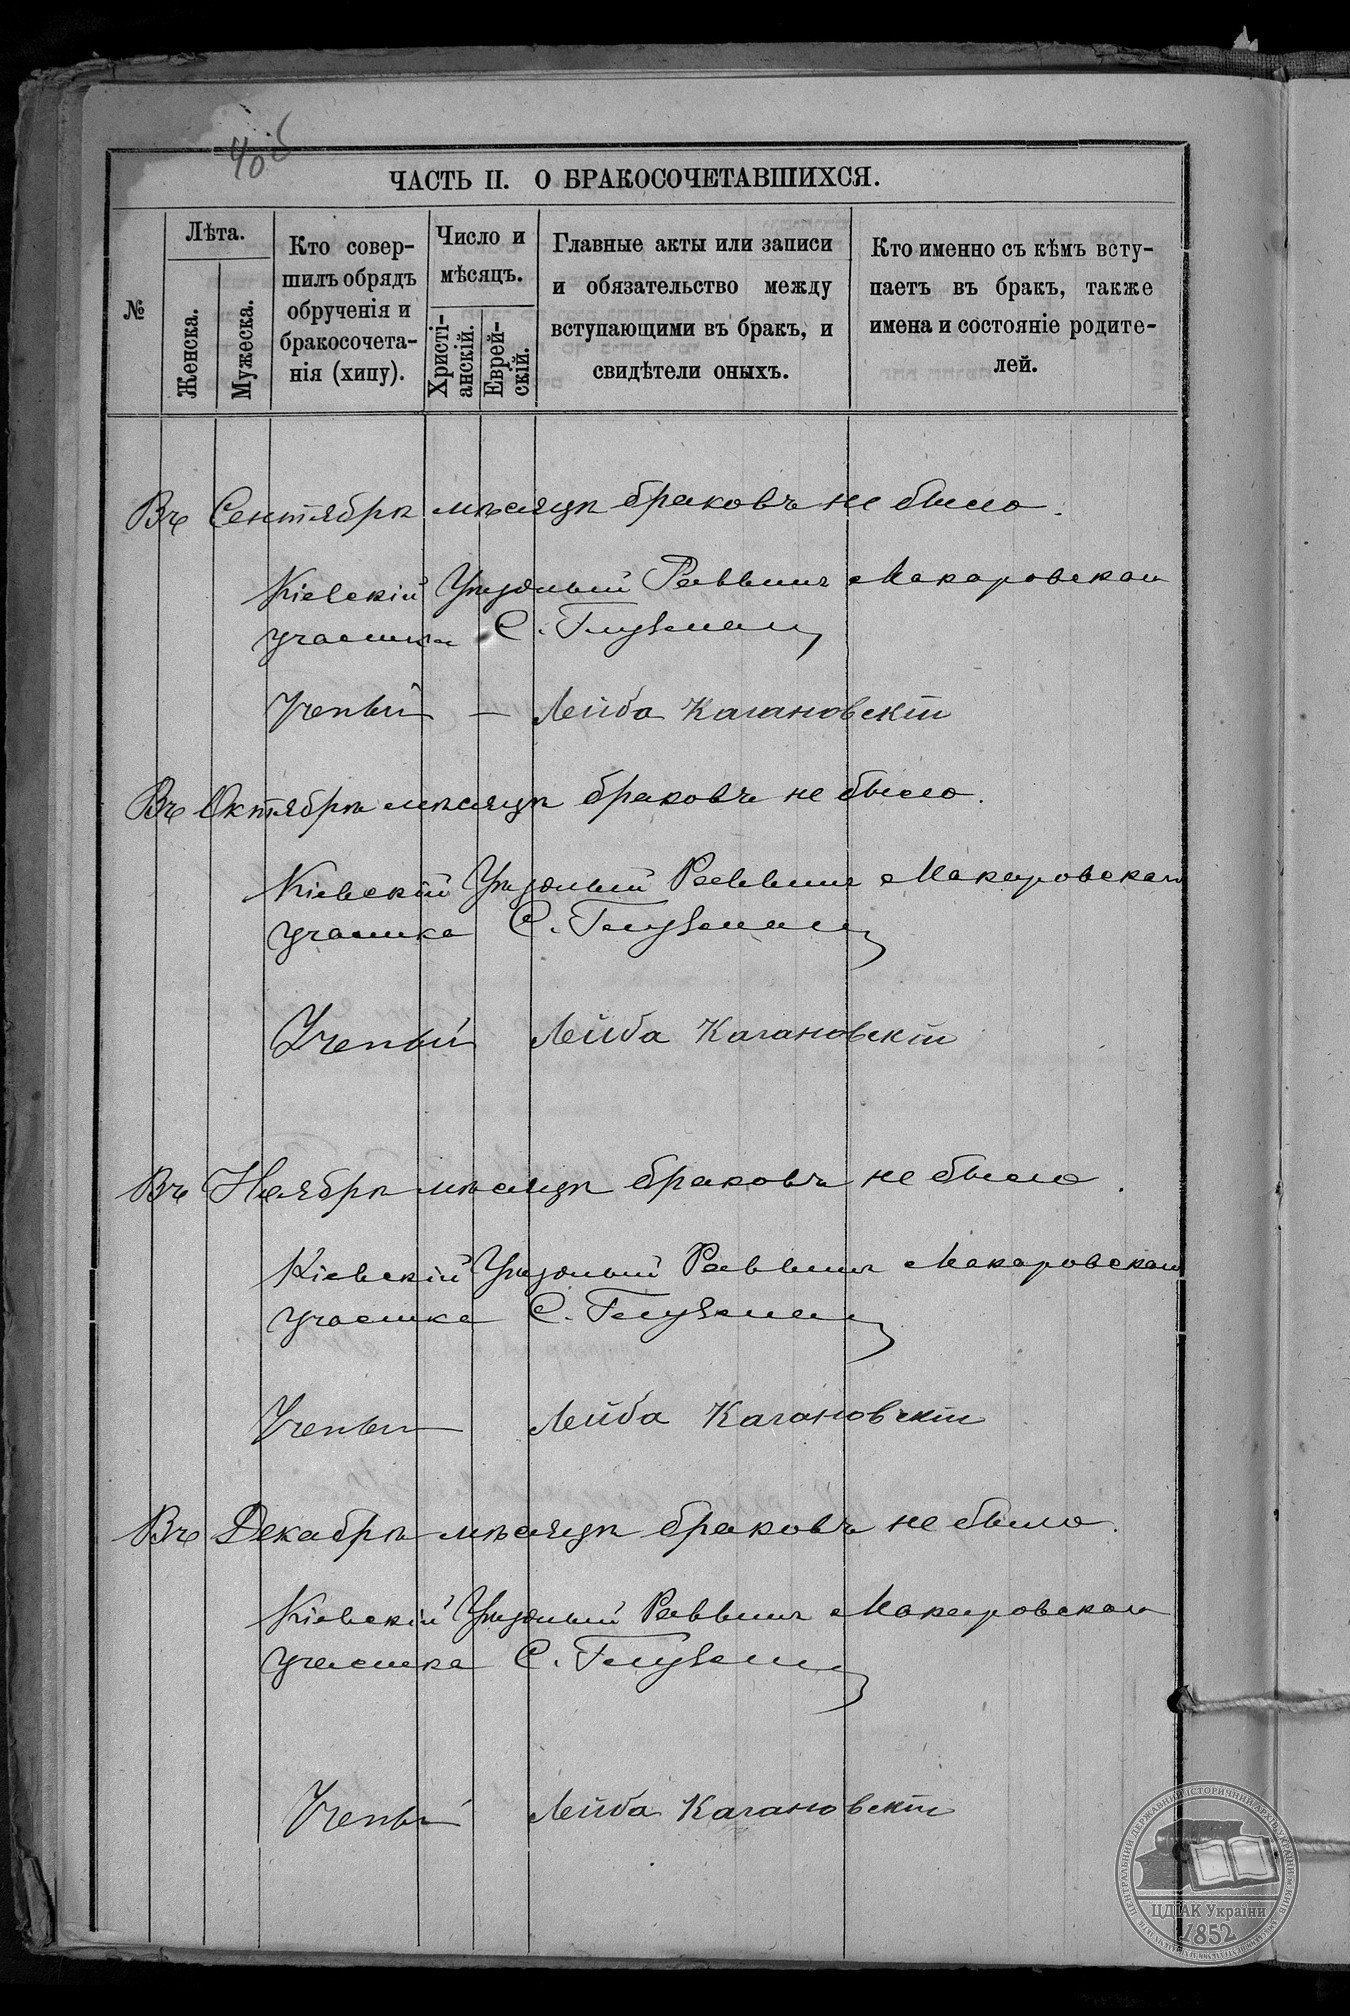 40б
ЧАСТЬ II. О БРАКОСОЧЕТАВШИХСЯ.
№
Лѣта.
Женска.
Мужеска.
Кто совер-
шилъ обрядъ
обрученія и
бракосочета-
нія (хипу).
Число и
мѣсяцъ.
Христі-
анскій.
Еврей-
скій.
Главные акты или записи
и обязательство между
вступающими въ бракъ, и
свидѣтели оныхъ.
Кто именно съ кѣмъ всту-
паетъ въ бракъ, также
имена и состояніе родите-
лей.
Въ Сентябрѣ мѣсяцѣ браковъ не было.
Кіевскій Уѣздный Раввинъ Макаровскаго
участка С. Глузманъ
Ученый — Лейба Кагановскій
Въ Октябрѣ мѣсяцѣ браковъ не было.
Кіевскій Уѣздный Раввинъ Макаровскаго
участка С. Глузманъ
Ученый Лейба Кагановскій
Въ Ноябрѣ мѣсяцѣ браковъ не было.
Кіевскій Уѣздный Раввинъ Макаровскаго
участка С. Глузманъ
Ученый Лейба Кагановскій
Въ Декабрѣ мѣсяцѣ браковъ не было.
Кіевскій Уѣздный Раввинъ Макаровскаго
участка С. Глузманъ
Ученый Лейба Кагановскій
ЦЕНТРАЛЬНИЙ ДЕРЖАВНИЙ ІСТОРИЧНИЙ АРХІВ УКРАЇНИ, М. КИЇВ
ЦДІАК України
1852